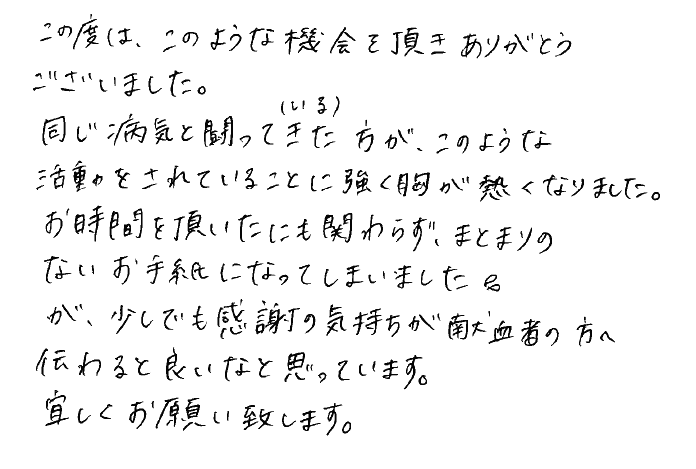 この度は、このような機会を頂きありがとう
ございました。
(いる)
同じ病気と闘ってきた方が、このような
活動をされていることに強く胸が熱くなりました。
お時間を頂いたにも関わらず、まとまりの
ないお手紙になってしまいました
が、少しでも感謝の気持ちが献血者の方へ
伝わると良いなと思っています。
宜しくお願い致します。